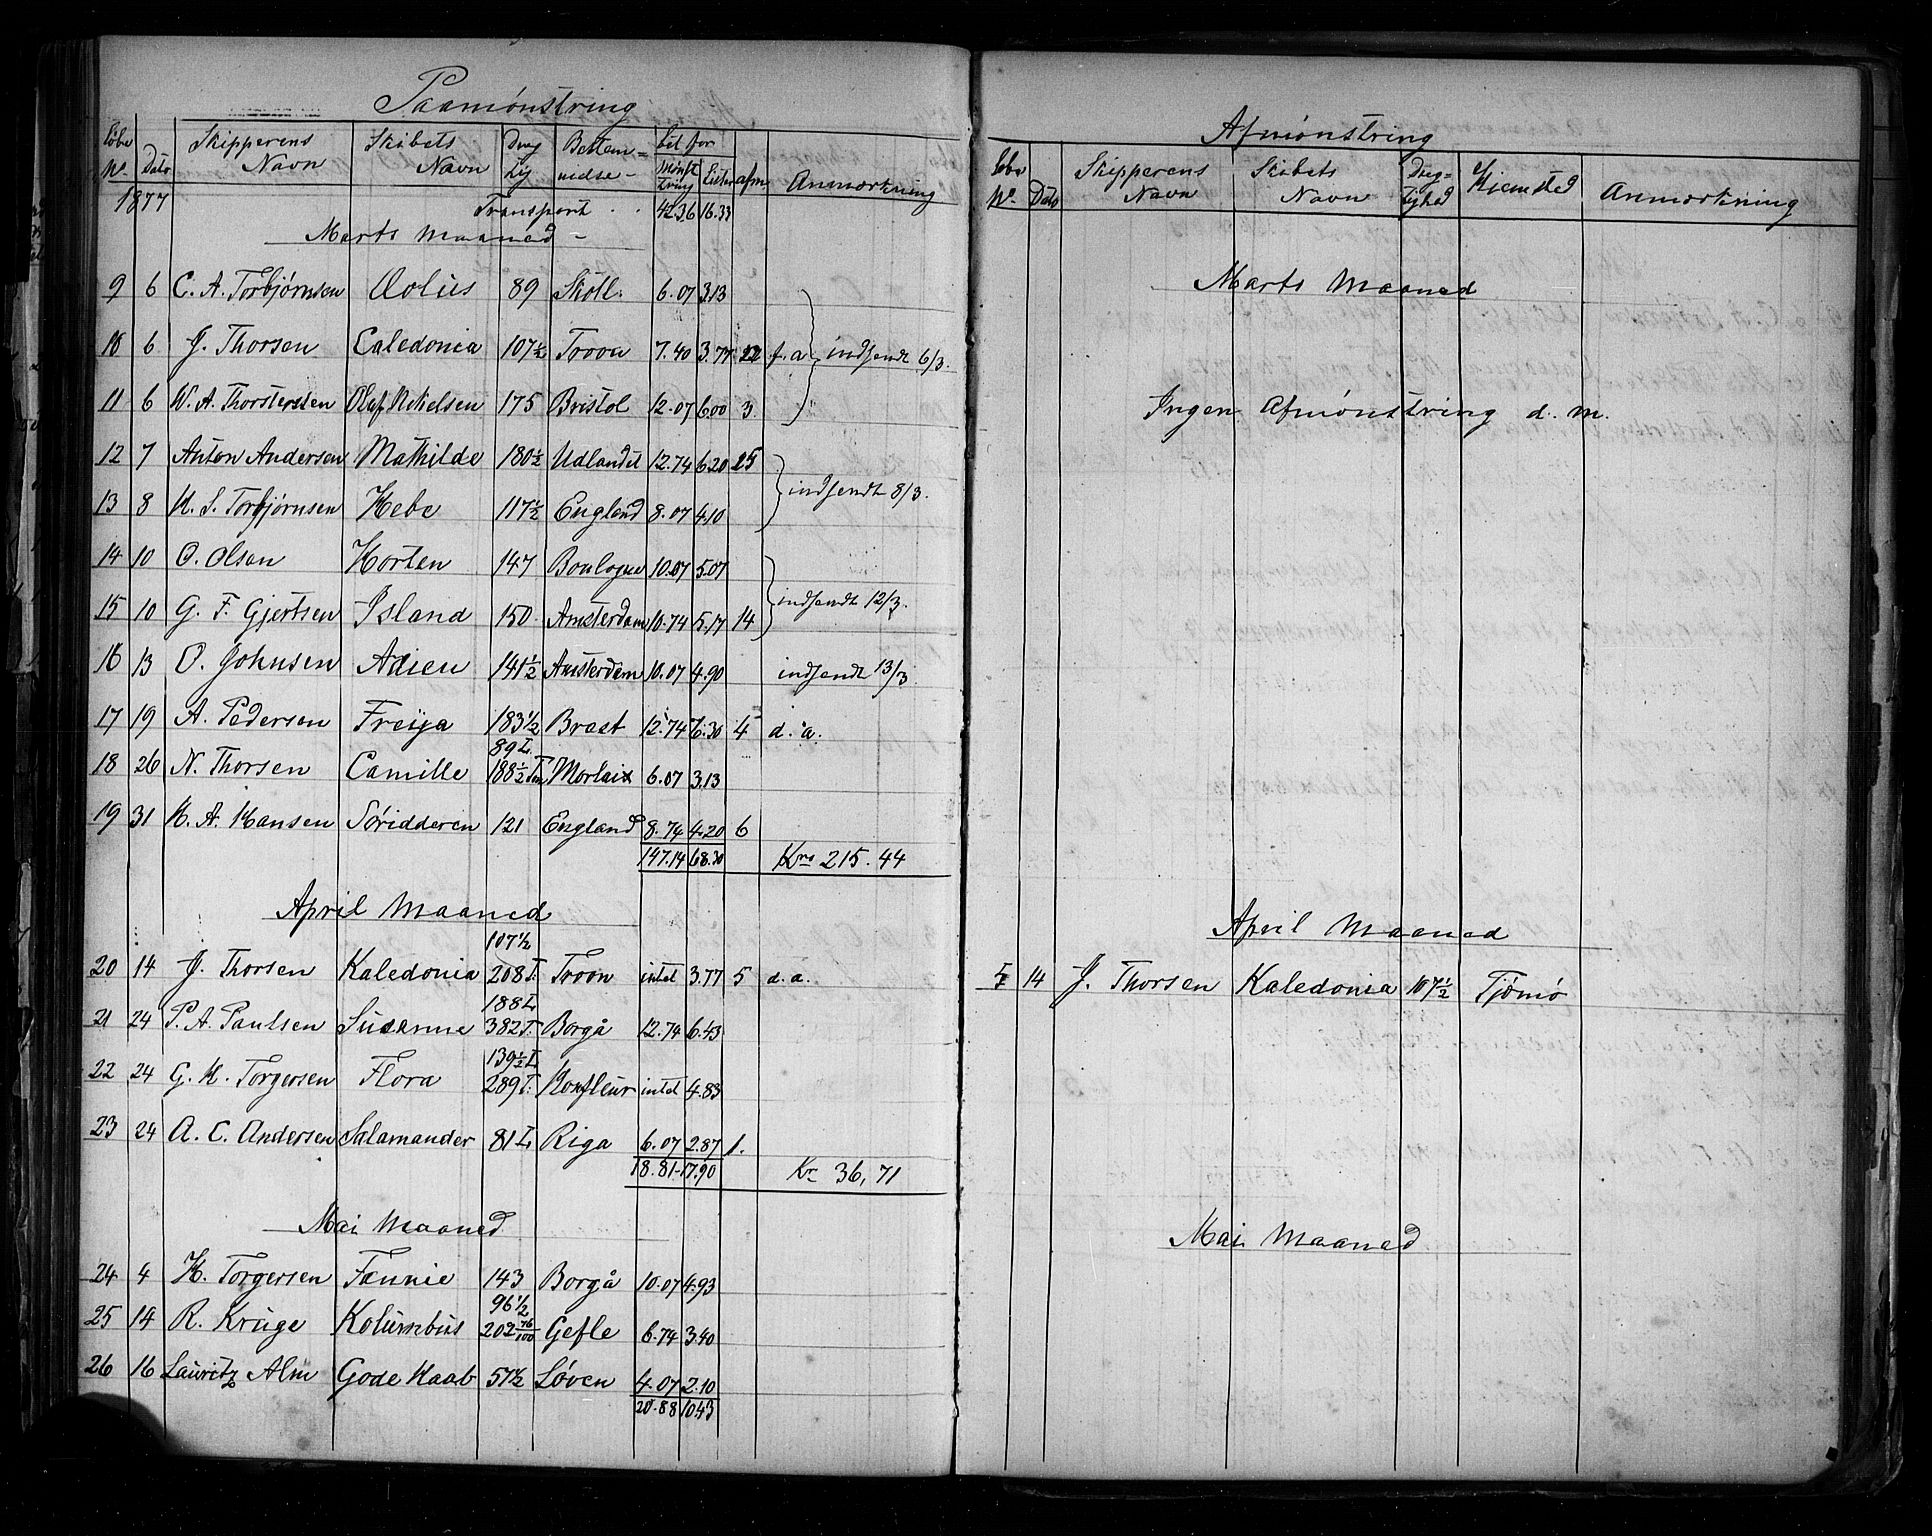 Paamønstring
Løbe No. Dato Skipperens Navn Skibets Navn Dræg tig Bestem= melse- Bet. for Mønst tring Lister afm. Anmærkning
1877 Transport . . 42.36 16.33
Marts Maaned -
9 6 C. A. Torbjørnsen Æolus 89 Skotl. 6.07 3.13
10 6 J. Thorsen Caledonia 107½ Troon 7.40 3.77 22 f. a. indsendt 6/3.
11 6 W. A. Thorstensen Oluf Nikelsen 175 Bristol 12.07 6.00 3.
12 7 Anton Andersen Mathilde 180½ Udlandet 12.74 6.20 25
13 8 H. S. Torbjørnsen Hebe 117½ England 8.07 4.10 indsendt 8/3.
14 10 O. Olsen Horten 147 Boulogne 10.07 5.07
15 10 G. F. Gjertsen Island 150 Amsterdam 10.74 5.17 14 indsendt 12/3.
16 13 O. Johnsen Adien 141½ Amsterdam 10.07 4.90 indsendt 13/3
17 19 A. Pedersen Freija 183½ Brest 12.74 6.30 4 d. a.
18 26 N. Thorsen Camille 89 L. 188½ Ton Morlaix 6.07 3.13
19 31 H. A. Hansen Søridderen 121 England 8.74 4.20 6
147.14 68.30 Krs 215.44
April Maaned
20 14 J. Thorsen Kaledonia 107½ 208 T. Troon intet 3.77 5 d. a.
21 24 P. A. Paulsen Susanne 188 L. 382 T. Borgå 12.74 6.43
22 24 G. H. Torgersen Flora 139½ L. 289 T. Honfleur intet 4.83
23 24 A. C. Andersen Salamander 81 L. Riga 6.07 2.87 1.
18.81 17.90 Kr 36,71
Mai Maaned
24 4 H. Torgersen Fannie 143 Borgå 10.07 4.93
25 14 R. Kruge Kolumbus 96½ 202 76/100 Gefle 6.74 3.40
26 16 Lauritz Alm Gode Haab 57½ Løven 4.07 2.10
20.88 10.43
Afmønstring
Løbe No. Dato Skipperens Navn Skibets Navn Dræg= tighed Hjemsted Anmærkning
Marts Maaned
Ingen Afmønstring d. M.
April Maaned
14 J. Thorsen Kaledonia 107½ Tjømø
Mai Maaned